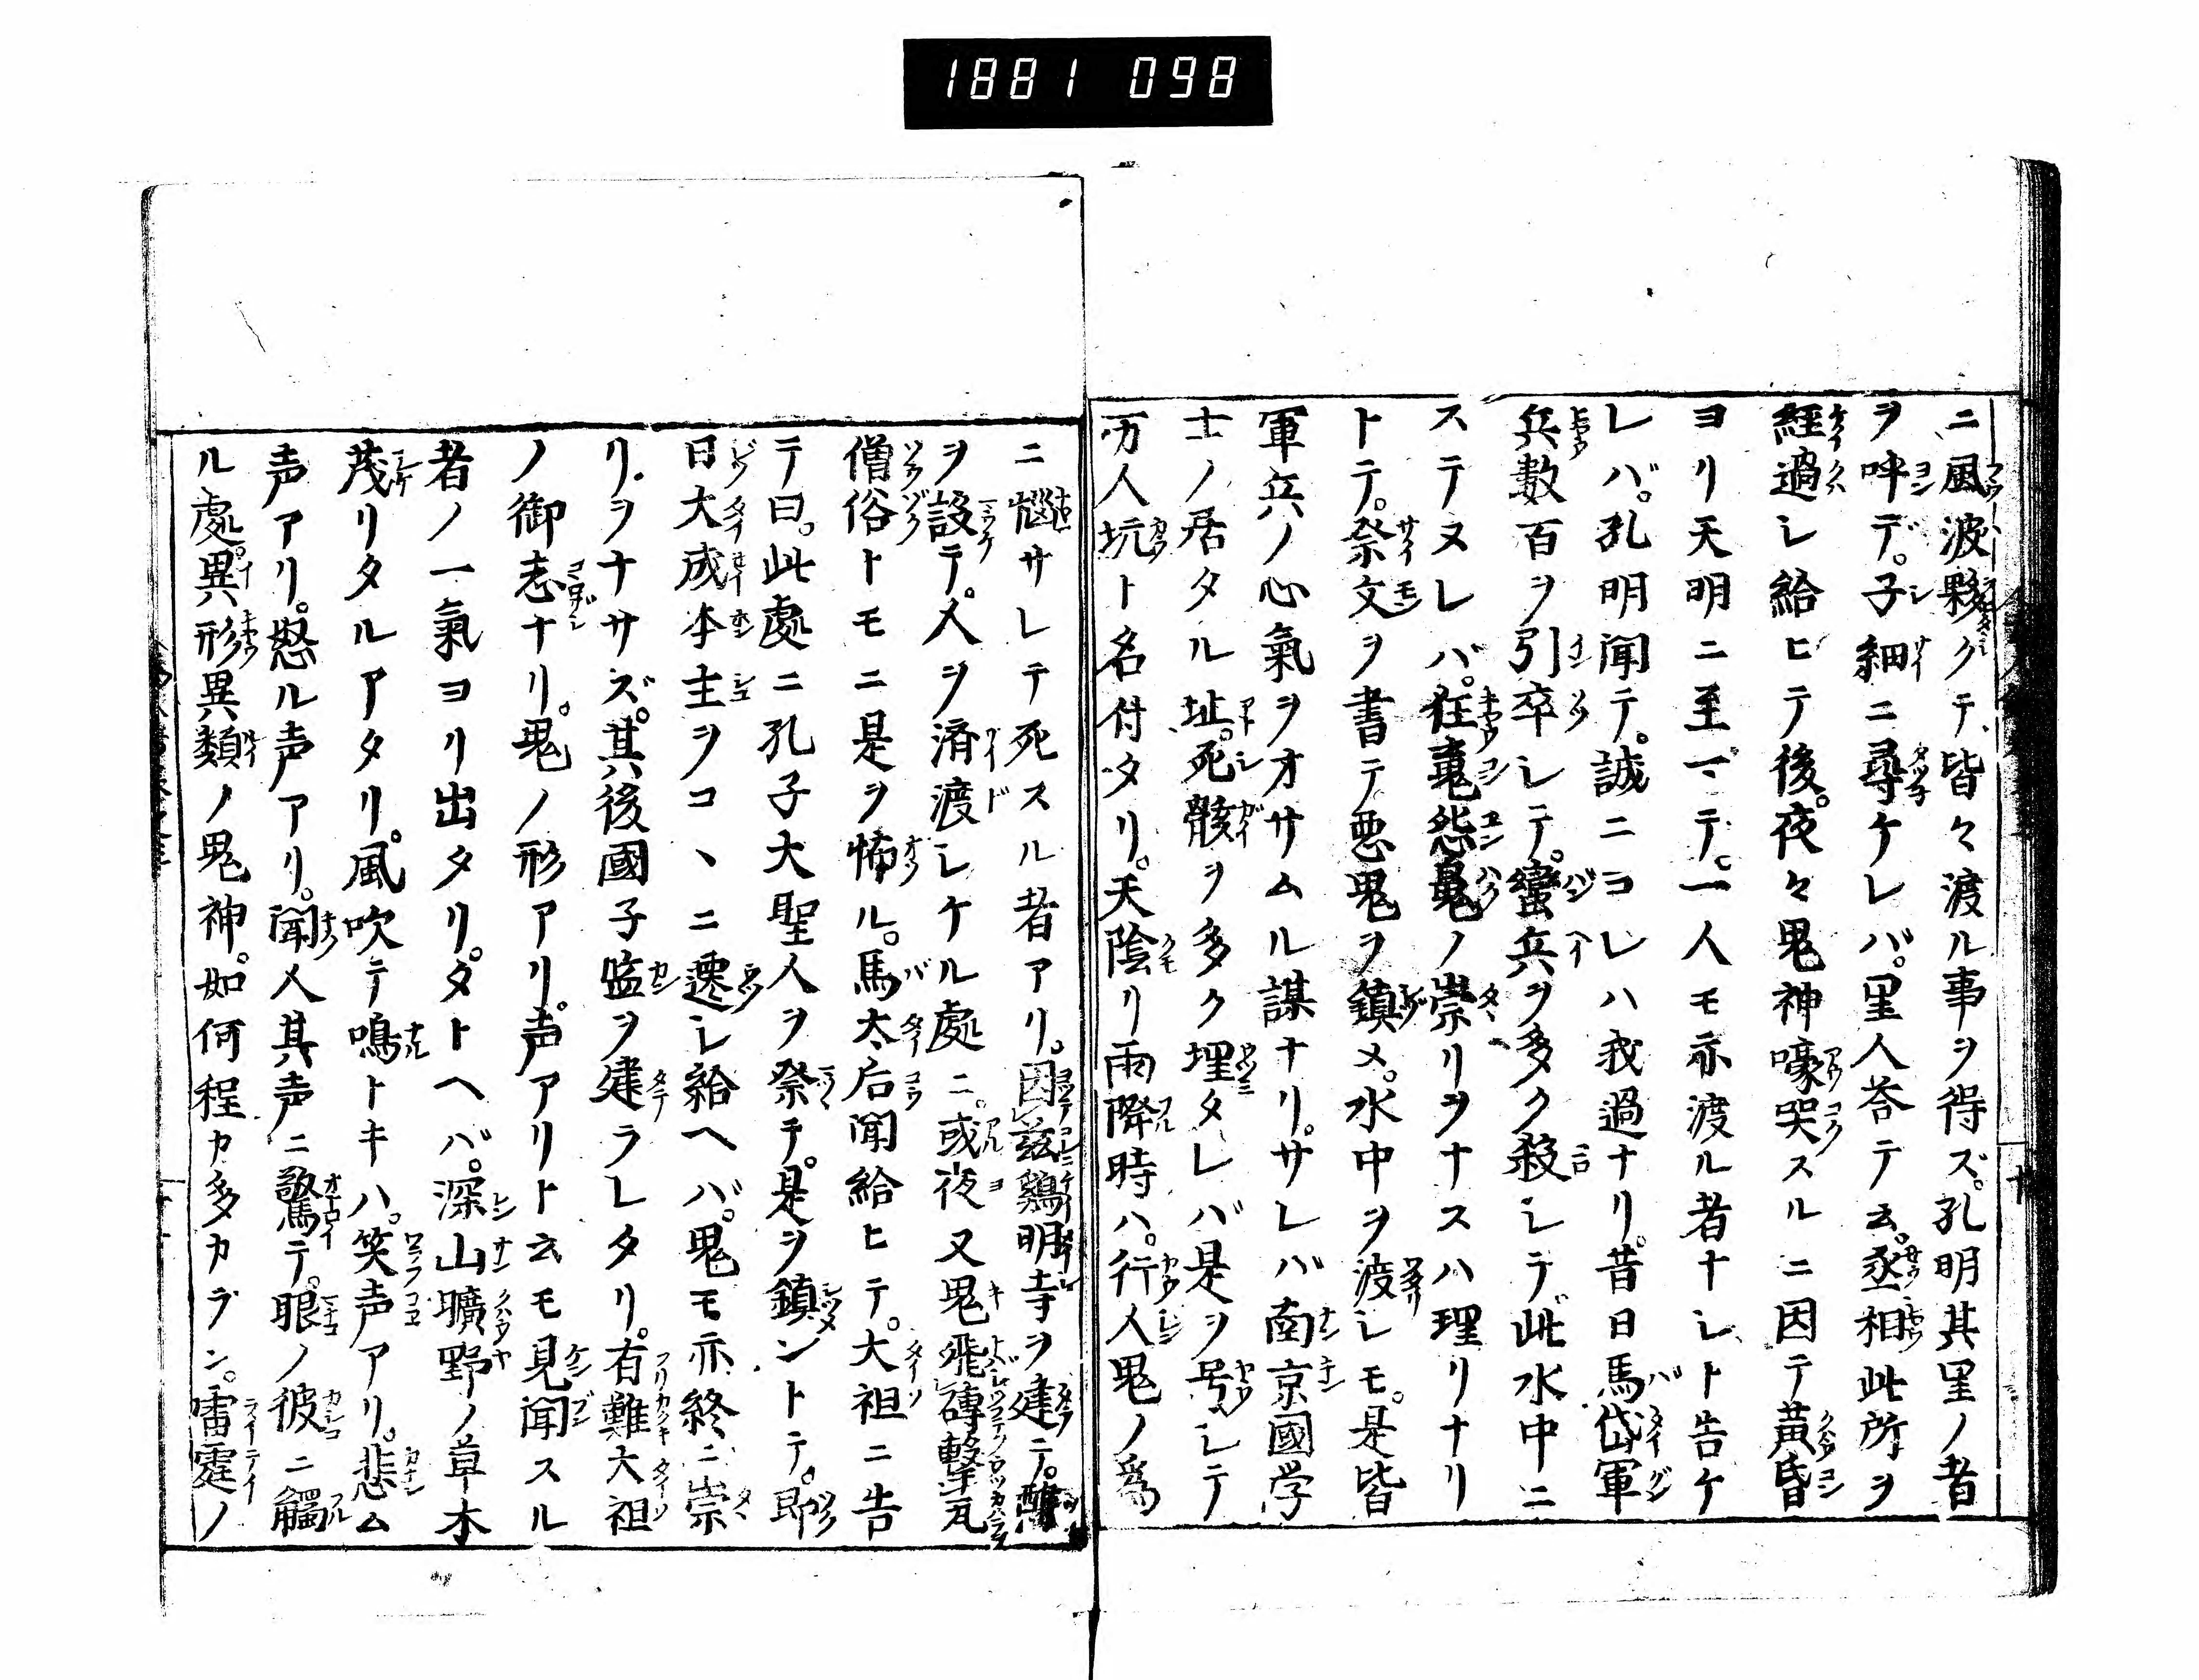 1881 098
ニ風波夥クテ皆々渡ル事ヲ得ズ。孔明其里ノ者
ヲ呼デ。子細ニ尋ケレバ。里人答テ云。丞相此所ヲ
經過シ給ヒテ後。夜々鬼神嚎哭スルニ因テ黄昏
ヨリ天明ニ至一テ。一人モ亦渡ル者ナシト告ケ
レバ。孔明聞テ。誠ニコレハ我過ナリ。昔日馬岱軍
兵數百ヲ引卒シテ。蠻兵ヲ多ク殺シテ此水中ニ
ステヌレバ。狂鬼怨鬼ノ崇リヲナスハ理リナリ
トテ。祭文ヲ書テ悪鬼ヲ鎮メ。水中ヲ渡シモ。是皆
軍兵ノ心氣ヲオサムル謀ナリ。サレバ南京國学
士ノ居タル址。死骸ヲ多ク埋タレバ是ヲ号シテ
万人坑ト名付タリ。天陰リ雨降時ハ。行人鬼ノ爲
ニ惱サレテ死スル者アリ。因茲鷄明寺ヲ建テ。醮
ヲ設テ。人ヲ済渡シケル處ニ。或夜又鬼飛磚撃瓦
僧俗トモニ是ヲ怖ル。馬太后聞給ヒテ。大祖ニ告
テ曰。此處ニ孔子大聖人ヲ祭テ。是ヲ鎮ントテ。即
日大成本主ヲコヽニ遷シ給ヘバ。鬼モ亦終ニ崇
リヲナサズ。其後國子監ヲ建ラレタリ。有難大祖
ノ御志ナリ。鬼ノ形アリ。声アリト云モ見聞スル
者ノ一氣ヨリ出タリ。タトヘバ。深山曠野ノ草木
茂リタルアタリ。風吹テ鳴トキハ。笑声アリ。悲ム
声アリ。怒ル声アリ。聞人其声ニ驚テ。眼ノ彼ニ觸
ル處。異形異類ノ鬼神。如何程カ多カラン。雷霆ノ